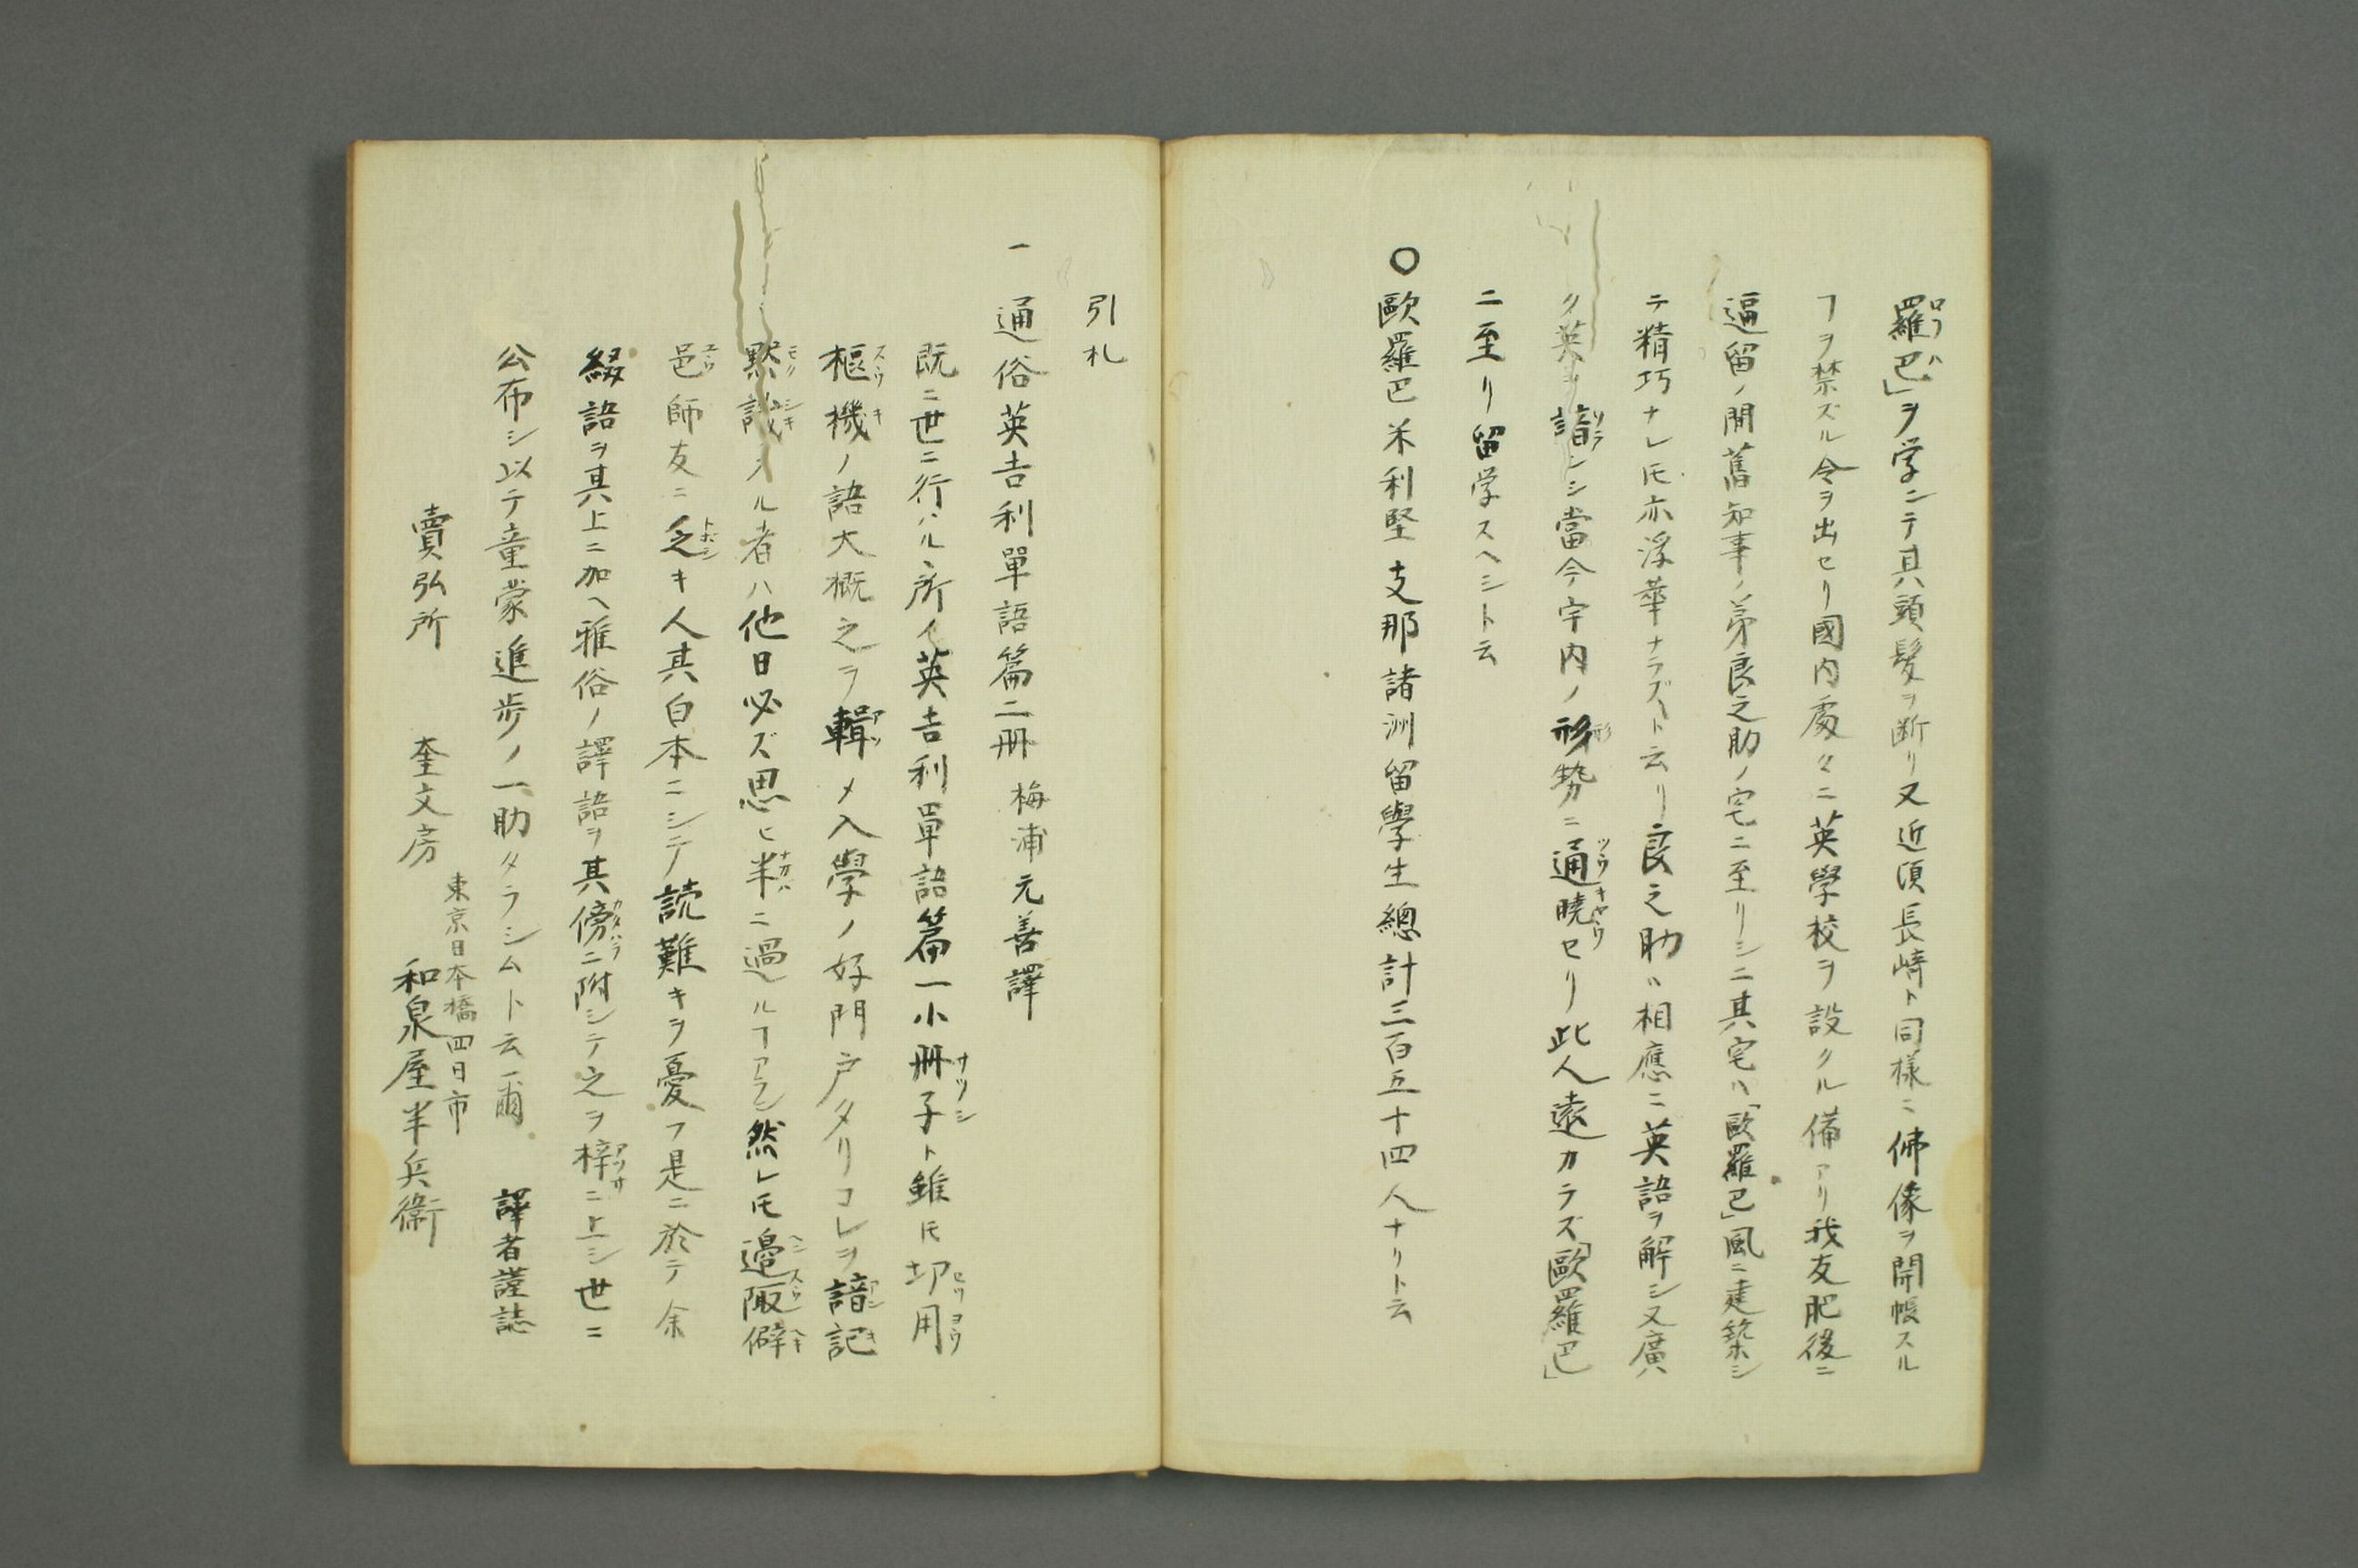 羅巴」ヲ学ンテ其頭髮ヲ断リ又近頃長崎ト同様ニ佛像ヲ開帳スル
ヿヲ禁ズル令ヲ出セリ國内處々ニ英學校ヲ設クル備アリ我友肥後ニ
逼留ノ間舊知事ノ弟良之助ノ宅ニ至リシニ其宅ハ「歐羅巴」風ニ建築シ
テ精巧ナレ𪜈亦浮華ナラズト云リ良之助ハ相應ニ英語ヲ解シ又廣
ク英 ヲ諳ンシ當今宇内ノ形勢ニ通曉セリ此人遠カラズ「歐羅巴」
ニ至リ留学スヘシト云
〇歐羅巴米利堅支那諸洲留學生總計三百五十四人ナリト云
引札
一 通俗英吉利單語篇二冊 梅浦元善譯
既ニ世ニ行ハルヽ所ノ英吉利單語篇一小冊子ト雖𪜈切用
樞機ノ語大概之ヲ輯メ入學ノ好門戸タリコレヲ諳記
黙識スル者ハ他日必ズ思ヒ半ニ過ルヿアラン然レ𪜈邊陬僻
邑師友ニ乏キ人其白本ニシテ読難キヲ憂フ是ニ於テ余
綴語ヲ其上ニ加ヘ雅俗ノ譯語ヲ其傍ニ附シテ之ヲ梓ニ上シ世ニ
公布シ以テ童蒙進歩ノ一助タラシムト云爾 譯者謹誌
東京日本橋四日市
賣弘所 奎文房 和泉屋半兵衛